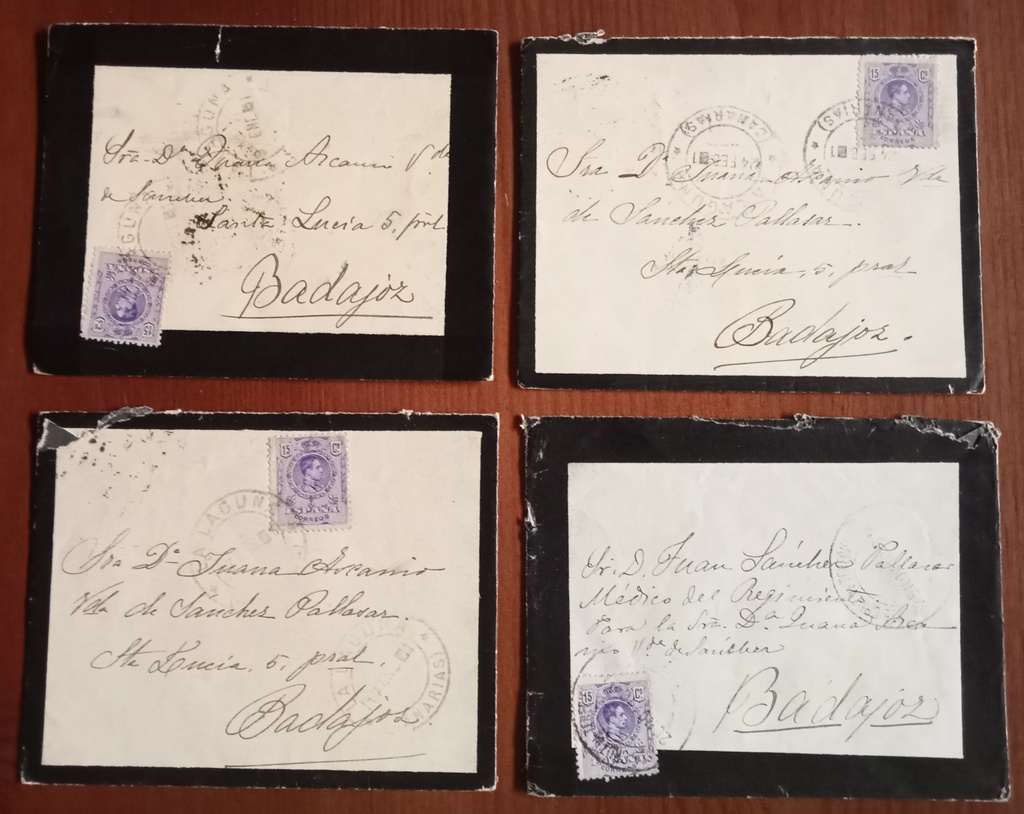 Sra. Dª Juana Ascanio Vda
de Sanchez
Santa Lucia 5, pral
Badajoz
LAGUNA
15 Cs
CORREOS
Sra Dª Juana Ascanio Vda
de Sánchez Pallasar.
Sta Lucia, 5, pral
Badajoz.
(CANARIAS)
24 FEB
15 Cs
CORREOS
Sra Dª Juana Ascanio
Vda de Sanchez Pallasar.
Sta Lucia, 5, pral.
Badajoz
LA LAGUNA
15 Cs
CORREOS
Sr. D. Juan Sánchez Pallasar
Médico del Regimiento.
Para la Sra. Dª Juana Asca
nio Vda de Sánchez
Badajóz
15 Cs
CORREOS